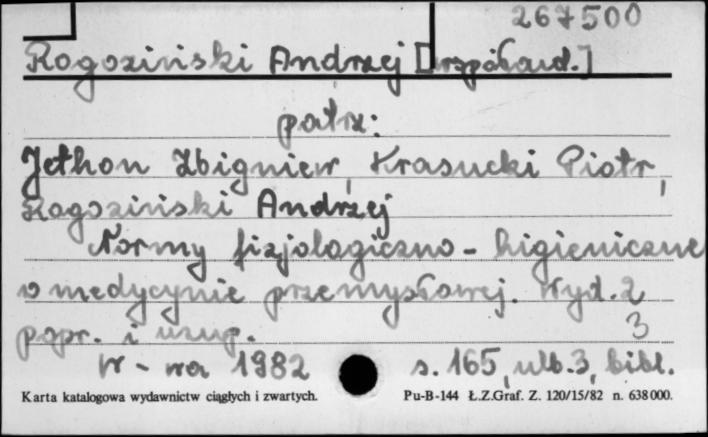 267500
Rogoziński Andrzej [współaut.]
patrz:
Jethon Zbigniew, Krasucki Piotr,
Rogoziński Andrzej
Normy fizjologiczno-higieniczne
w medycynie przemysłowej. Wyd. 2
popr. i uzup. 3
W-wa 1982 s. 165, ulb. 3, bibl.
Karta katalogowa wydawnictw ciągłych i zwartych. Pu-B-144 Ł.Z.Graf. Z. 120/15/82 n. 638000.